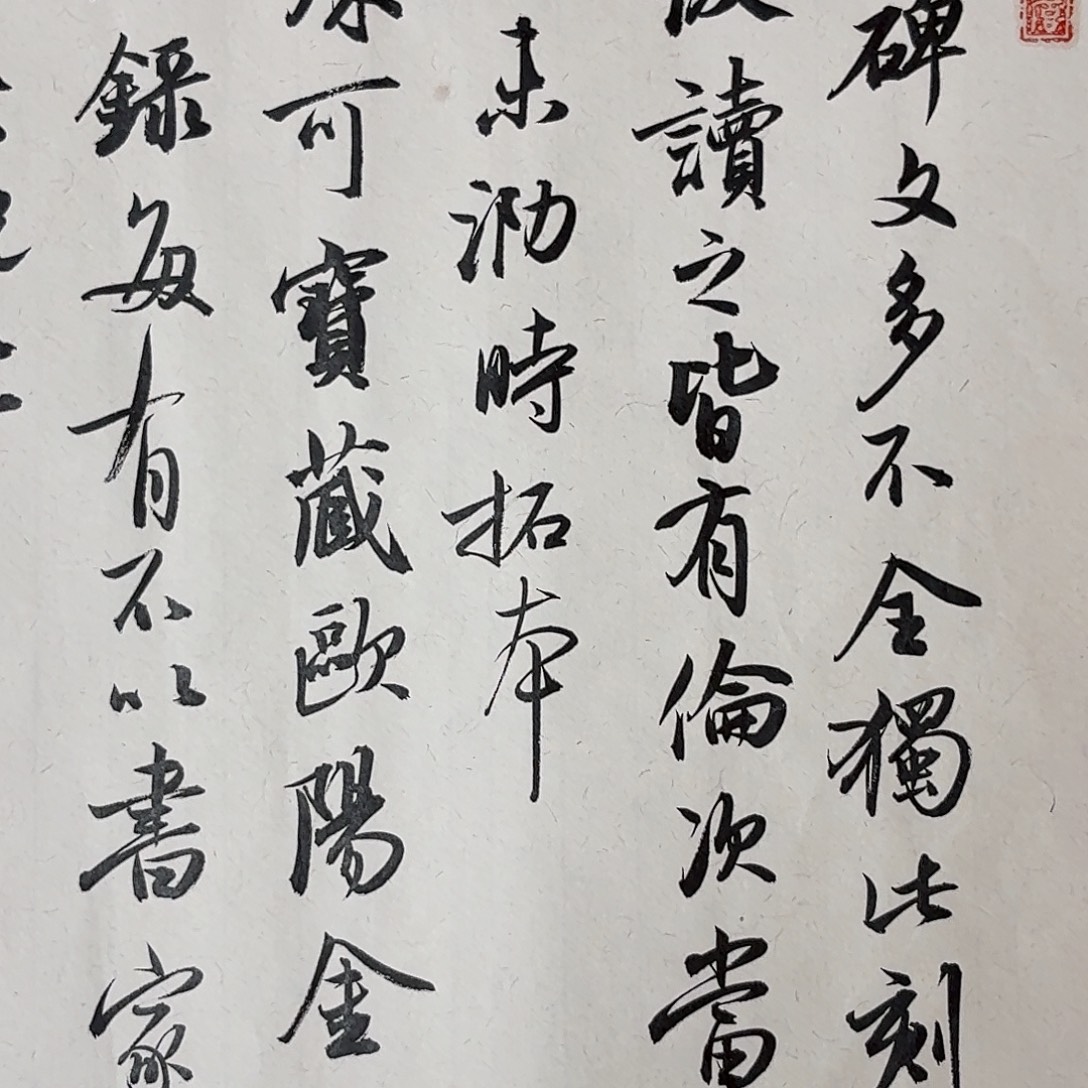 碑文多不全獨此刻
讀之皆有倫次當
未泐時拓本
可寶藏歐陽金
錄每有不以書家